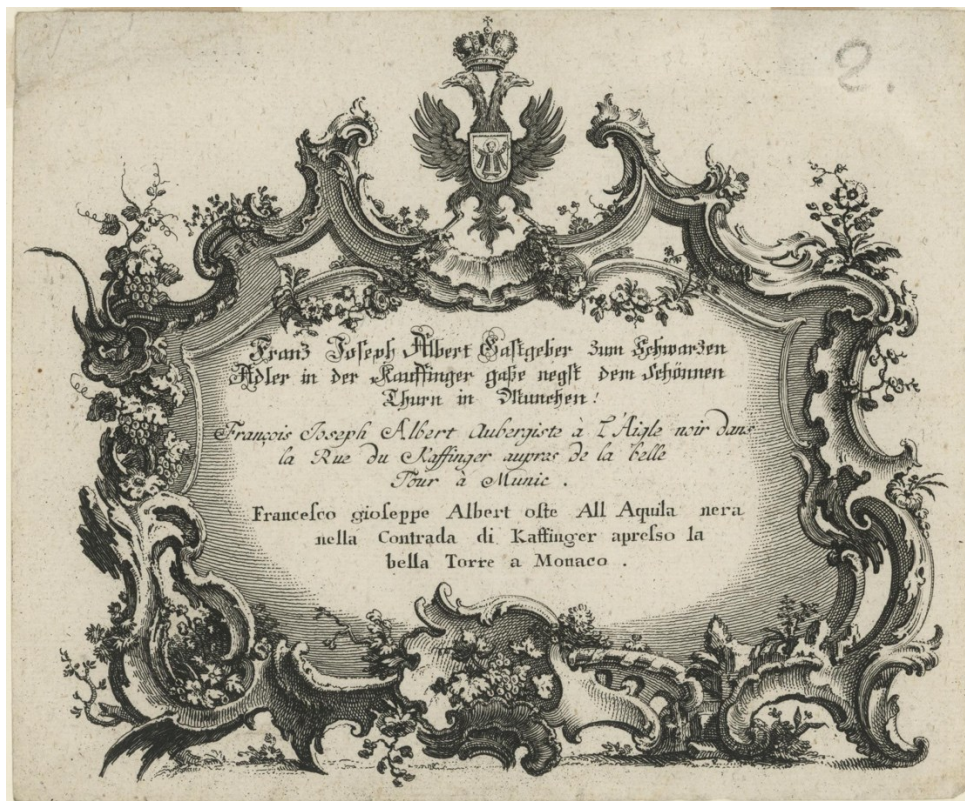 2.
Franz Joseph Albert Gastgeber zum Schwarzen
Adler in der Kauffinger gaße negst dem Schönnen
Thurn in Munchen!
François Joseph Albert Aubergiste à L'Aigle noir dans
la Rue du Kaffinger aupras de la belle
Tour à Munic .
Francesco gioseppe Albert oste All Aquila nera
nella Contrada di Kaffinger apresso la
bella Torre a Monaco .